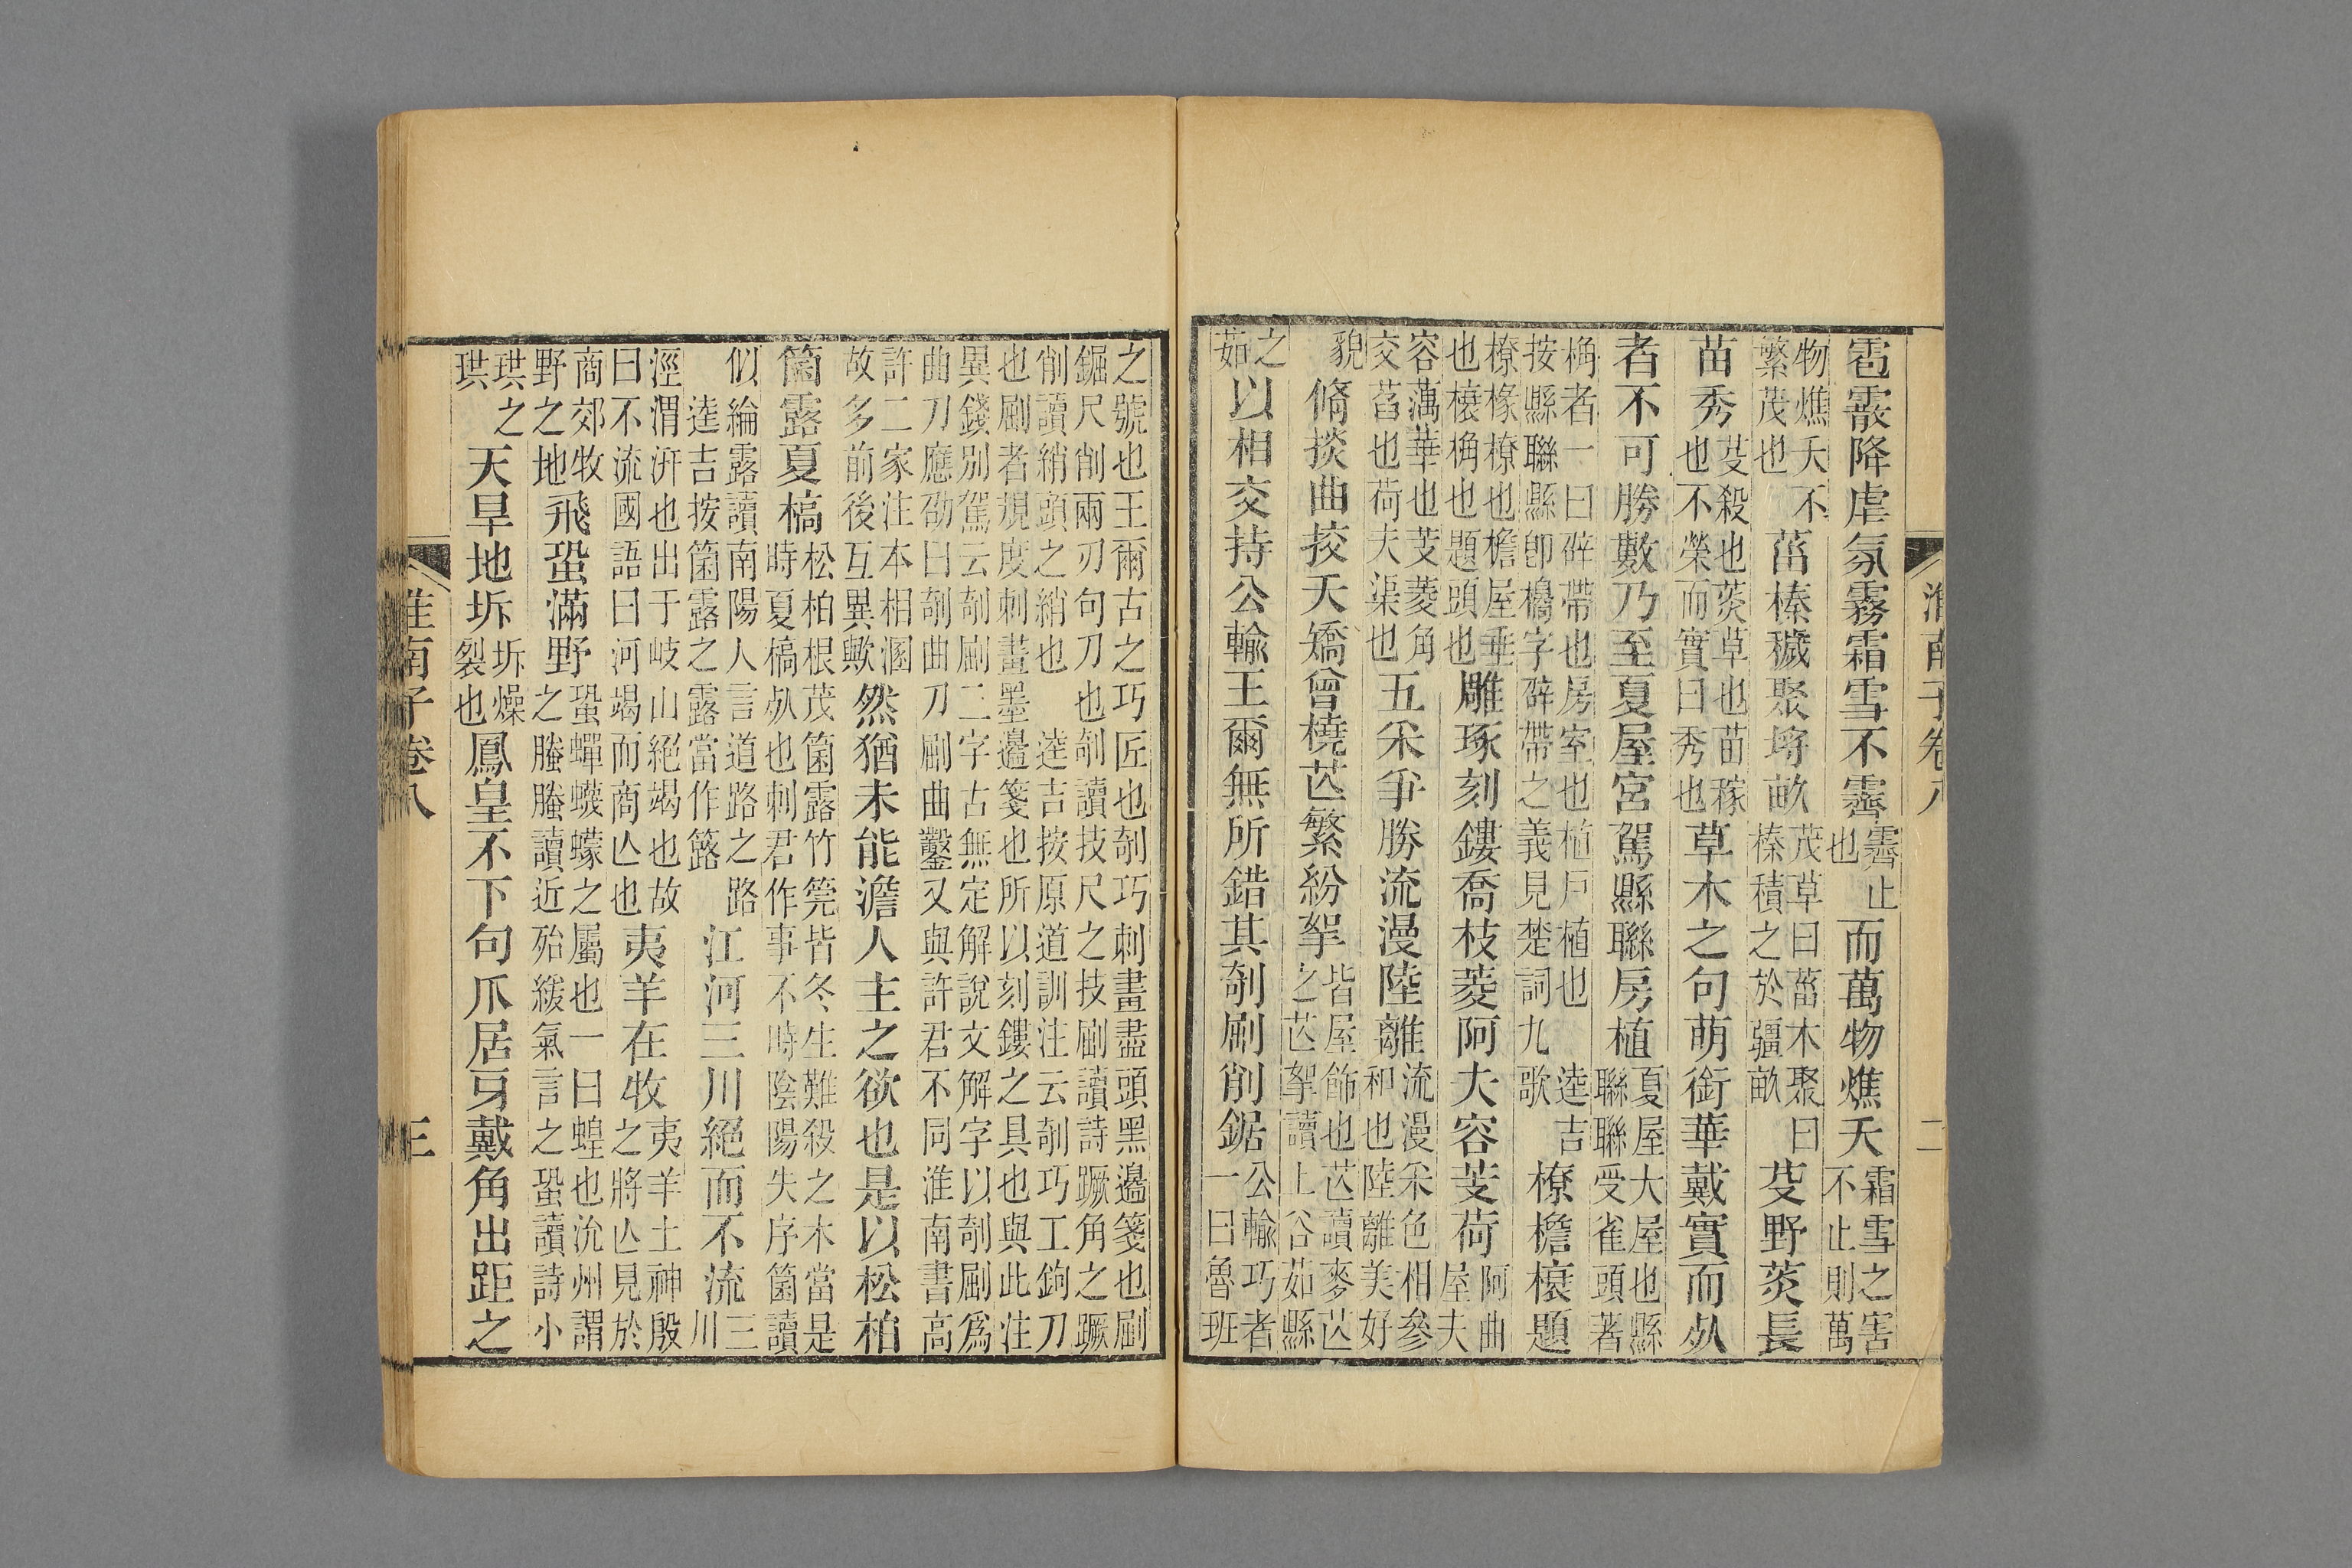 淮南子卷八 二
雹霰降虐氛霧霜雪不霽霽止也而萬物燋夭霜雪之害不止則萬
物燋夭不繁茂也菑榛穢聚埒畝茂草曰菑木聚曰榛積之於疆畝芟野菼長
苗秀芟殺也菼草也苗稼也不榮而實曰秀也草木之句萌銜華戴實而死
者不可勝數乃至夏屋宮駕縣聯房植夏屋大屋也縣聯聯受雀頭著
桷者一曰辟帶也房室也植戶植也逵吉按縣聯縣卽櫋字辟帶之義見楚詞九歌橑檐榱題
橑椽橑也檐屋垂也榱桷也題頭也雕琢刻鏤喬枝菱阿夫容芰荷阿曲屋夫
容藕華也芰菱角交萏也荷夫渠也五采爭勝流漫陸離流漫采色相參和也陸離美好
貌脩掞曲挍夭矯曾橈芒繁紛挐皆屋飾也芒讀麥芒之芒挐讀上谷茹縣
之茹以相交持公輸王爾無所錯其剞剧削鋸公輸巧者一曰魯班
之號也王爾古之巧匠也剞巧刺畫盡頭黑邊箋也剧鋸尺削兩刃句刀也剞讀技尺之技剧讀詩蹶角之蹶
削讀綃頭之綃也逵吉按原道訓注云剞巧工鉤刀也剧者規度刺畫墨邊箋也所以刻鏤之具也與此注
異錢別駕云剞剧二字古無定解說文解字以剞剧爲曲刀應劭曰剞曲刀剧曲鑿又與許君不同淮南書高
許二家注本相溷故多前後互異歟然猶未能澹人主之欲也是以松柏
箘露夏槁松柏根茂箘露竹筦皆冬生難殺之木當是時夏槁死也刺君作事不時陰陽失序箘讀
似綸露讀南陽人言道路之路逵吉按箘露之露當作簬江河三川絕而不流三川
涇渭汧也出于岐山絕竭也故曰不流國語曰河竭而商亡也夷羊在牧夷羊土神殷之將亡見於
商郊牧野之地飛蛩滿野蛩蟬蠛蠓之屬也一曰蝗也沇州謂之螣螣讀近殆緩氣言之蛩讀詩小
珙之珙天旱地坼坼燥裂也鳳皇不下句爪居牙戴角出距之
淮南子卷八 三